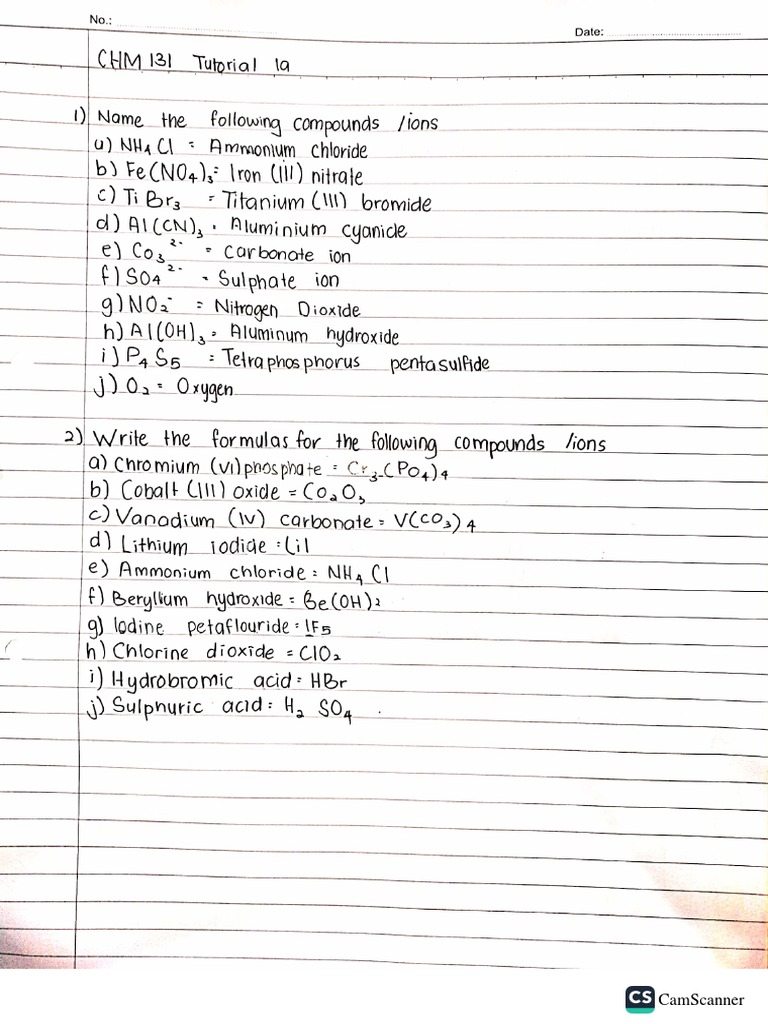 No.:
Date:
CHM 131 Tutorial 1a
1) Name the following compounds /ions
a) NH4Cl = Ammonium chloride
b) Fe(NO4)3 = Iron (III) nitrate
c) TiBr3 = Titanium (III) bromide
d) Al(CN)3 = Aluminium cyanide
e) Co3 2- = Carbonate ion
f) SO4 2- = Sulphate ion
g) NO2- = Nitrogen Dioxide
h) Al(OH)3 = Aluminum hydroxide
i) P4S5 = Tetraphosphorus pentasulfide
j) O2 = Oxygen
2) Write the formulas for the following compounds /ions
a) Chromium (VI) phosphate = Cr3(PO4)4
b) Cobalt (III) oxide = Co2O3
c) Vanadium (IV) carbonate = V(CO3)4
d) Lithium iodide = LiI
e) Ammonium chloride = NH4Cl
f) Beryllium hydroxide = Be(OH)2
g) Iodine petaflouride = IF5
h) Chlorine dioxide = ClO2
i) Hydrobromic acid = HBr
j) Sulphuric acid = H2 SO4
CS CamScanner